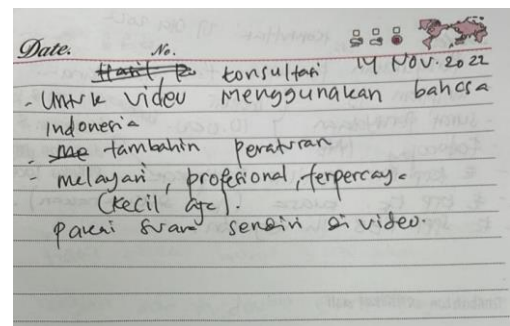 Date. No.
Hasil konsultasi 14 NOV. 2022
- Untuk video menggunakan bahasa
Indonesia
- me tambahin peraturan
- melayani, profesional, terpercaya
(kecil aja).
pakai suara sendiri di video.